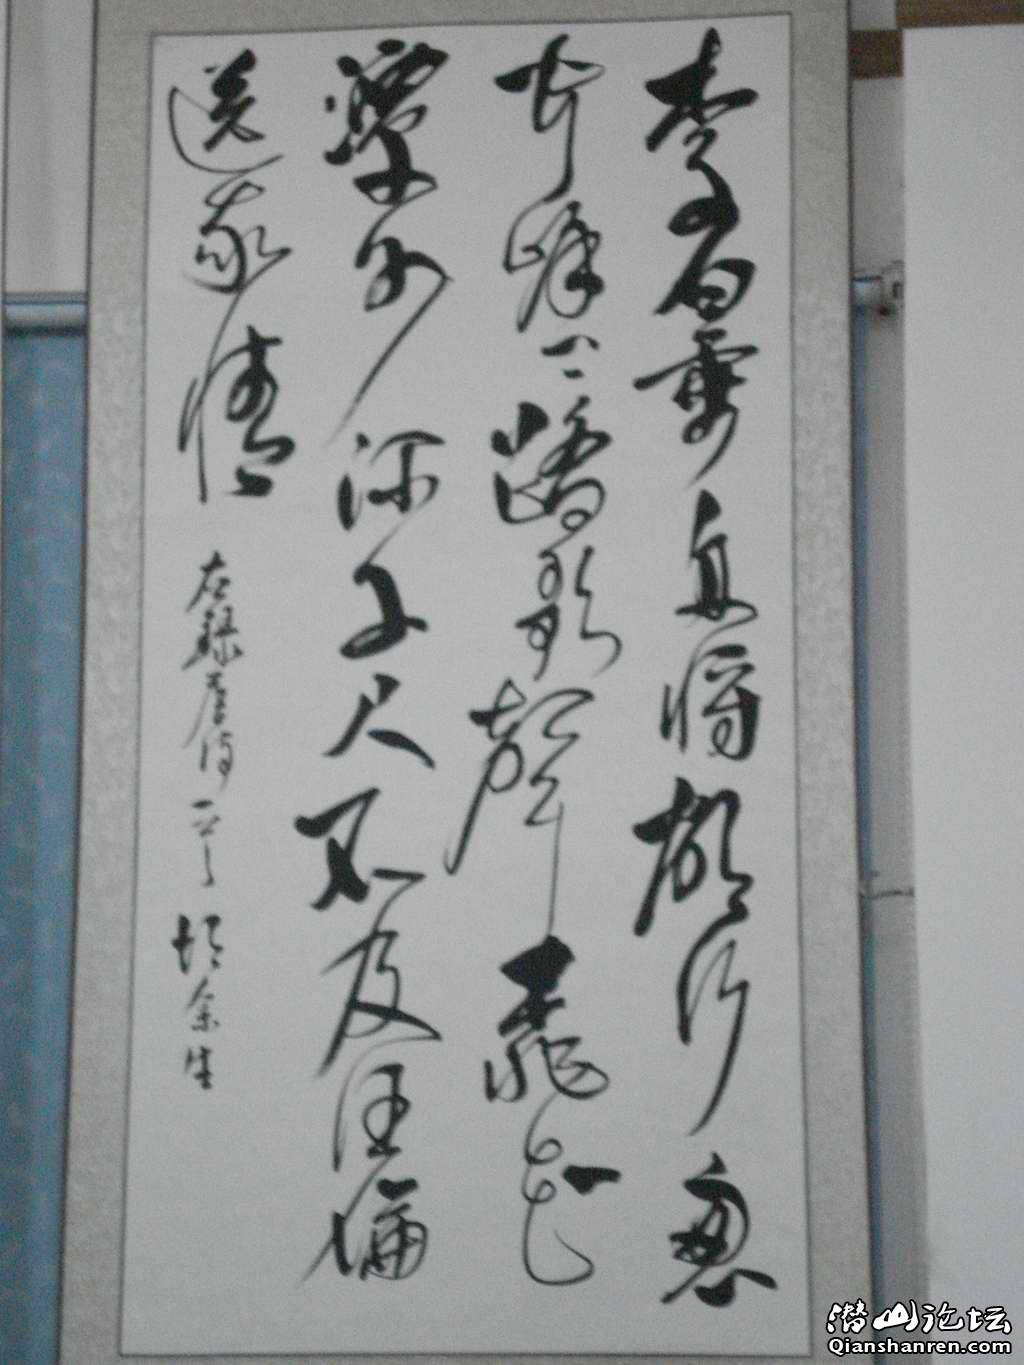 李白乘舟将欲行忽
闻岸上踏歌聲桃花
潭水深千尺不及汪倫
送我情
右録唐诗一首
余生
潜山论坛
Qianshanren.com